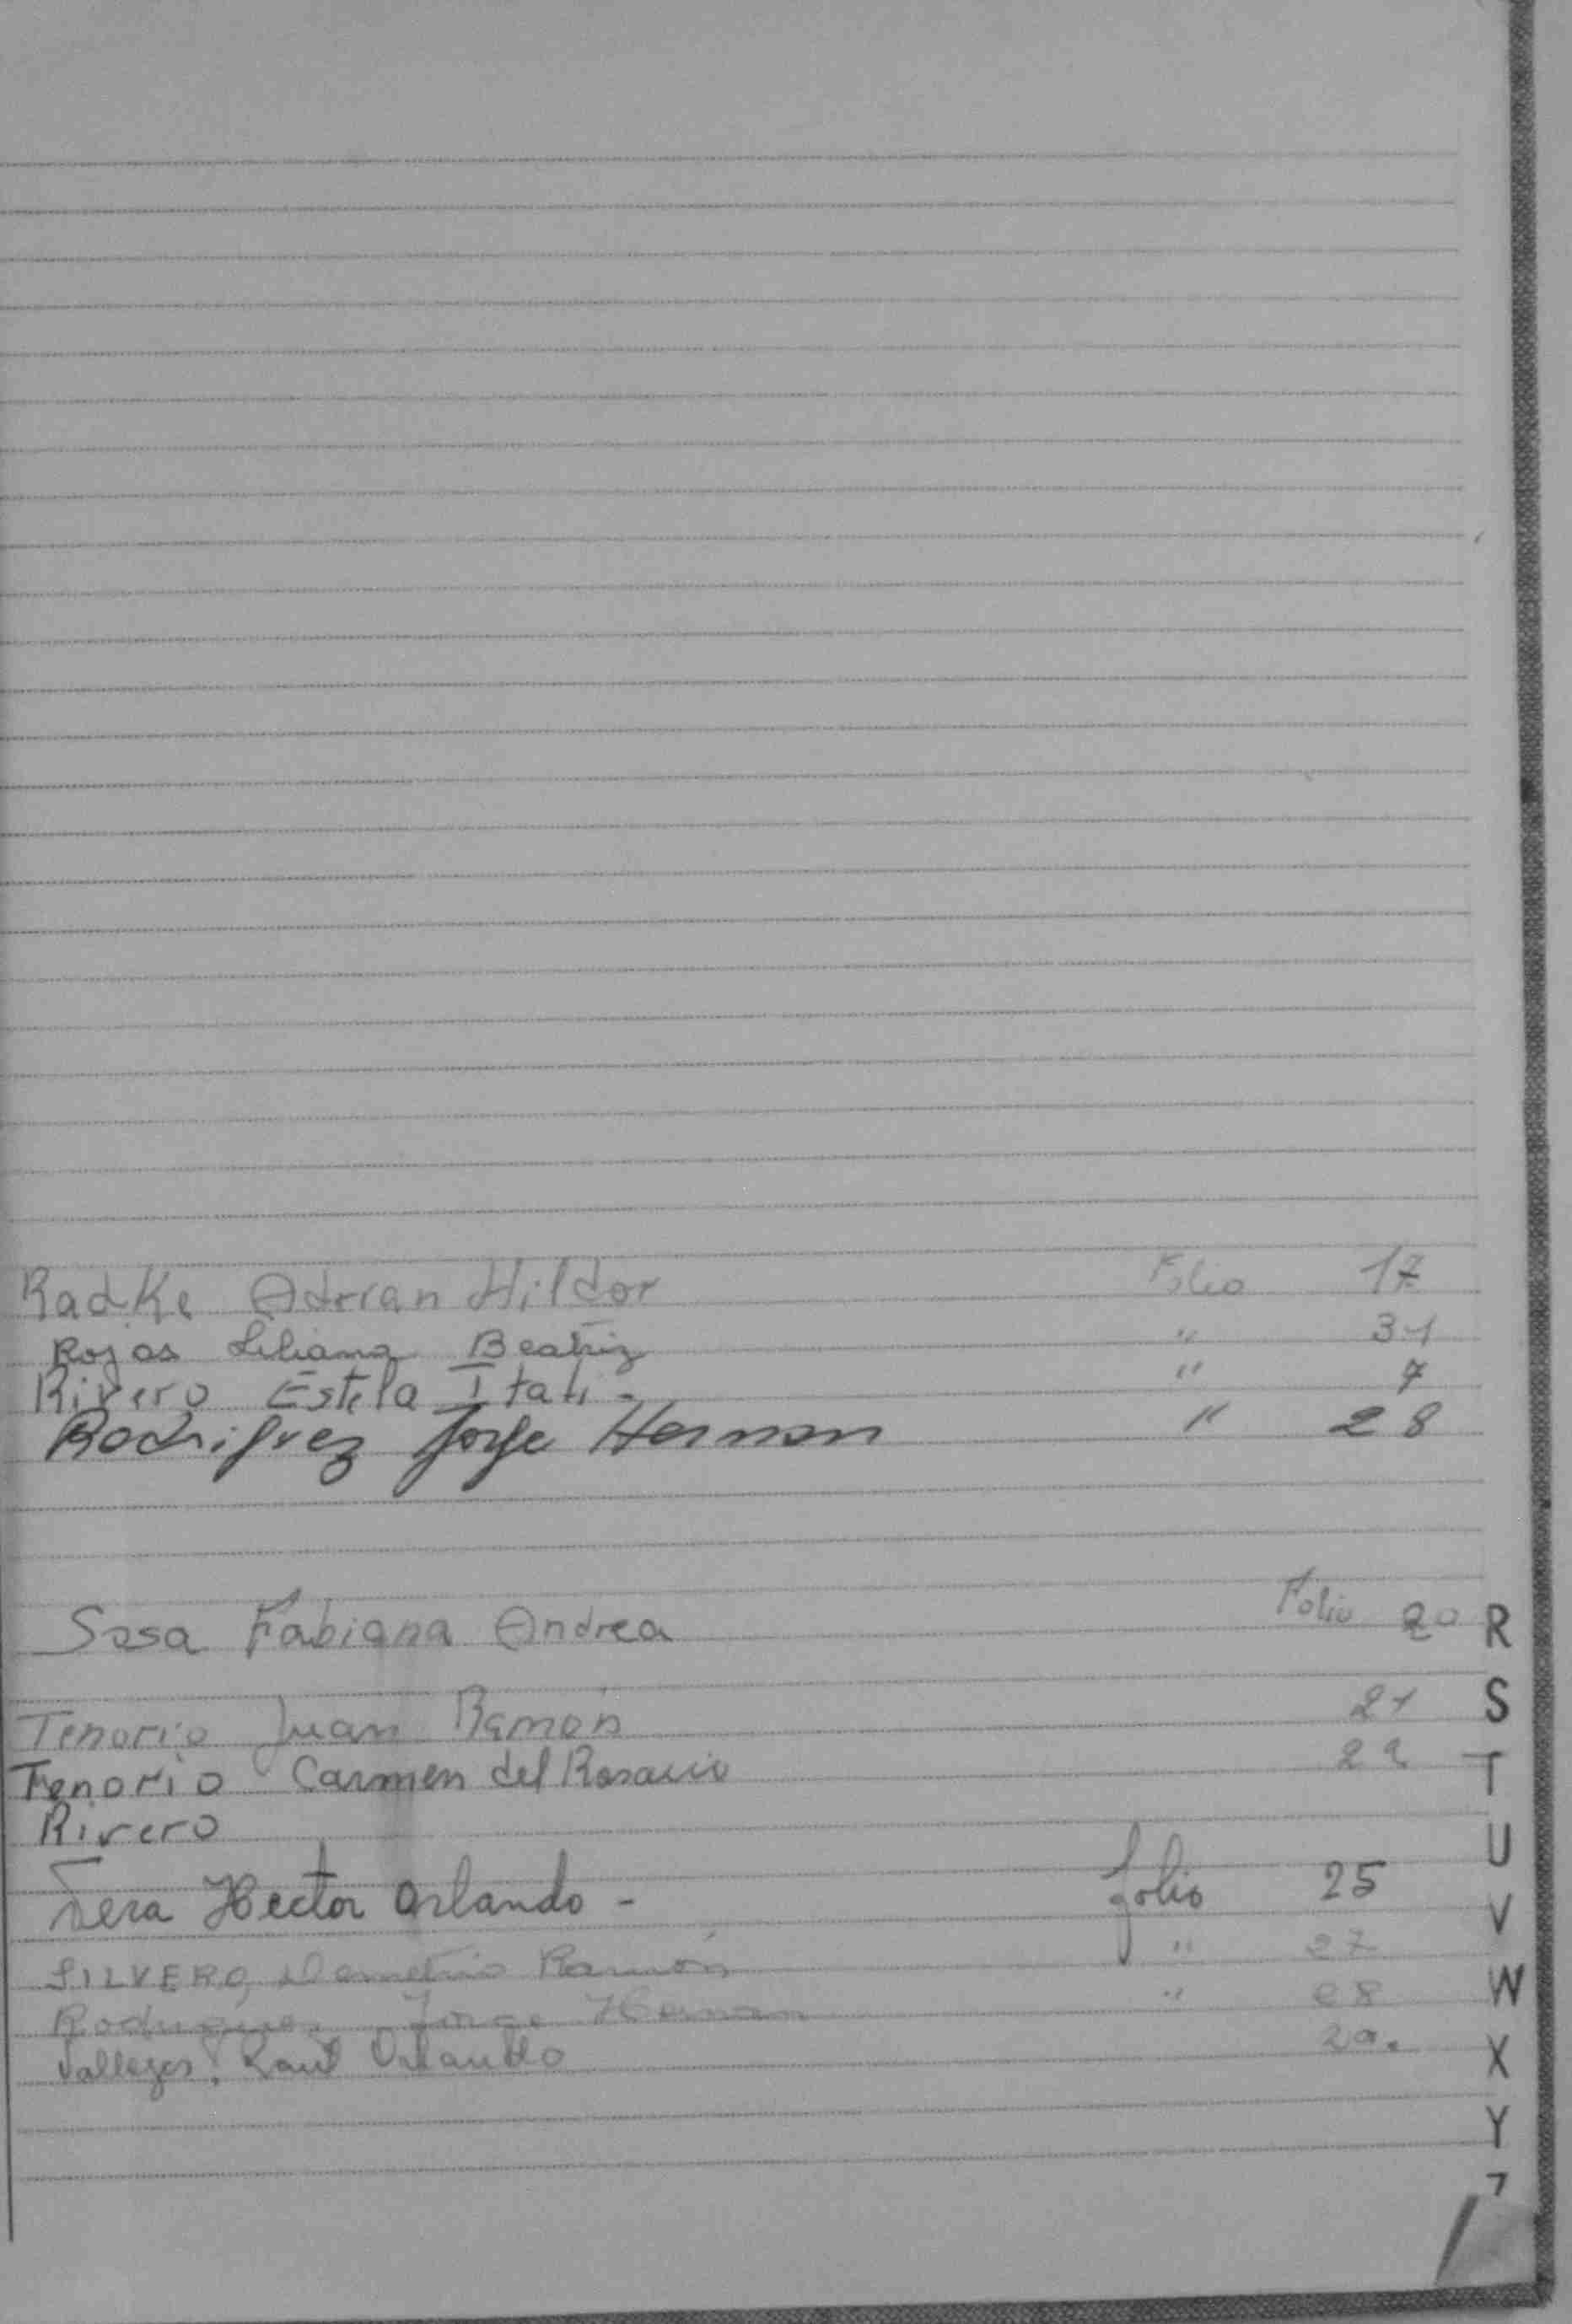 Radke Adrian Hildor Folio 17
Rojas Liliana Beatriz " 31
Rivero Estela Itati - " 7
Rodriguez Jorge Hernan " 28
Sosa Fabiana Andrea Folio 20
R
Tenorio Juan Ramón 21
S
Tenorio Carmen del Rosario 22
T
Rivero
U
Vera Hector Orlando - folio 25
V
SILVERO, Demetrio Ramón " 27
W
Rodriguez Jorge Hernan " 28
Vallejos, Raul Orlando 29.
X
Y
Z